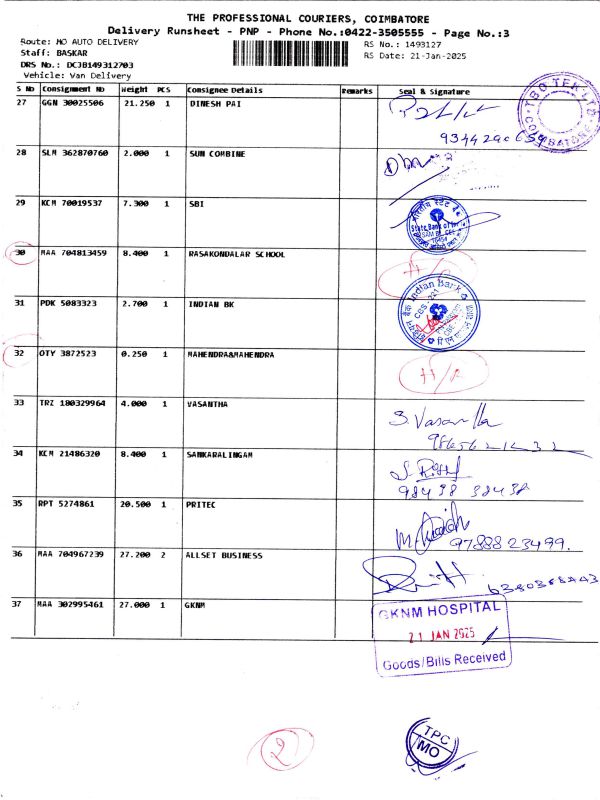 THE PROFESSIONAL COURIERS, COIMBATORE
Delivery Runsheet - PNP - Phone No.:0422-3505555 - Page No.:3
Route: MO AUTO DELIVERY
RS No.: 1493127
Staff: BASKAR
RS Date: 21-Jan-2025
DRS No.: DCJB149312703
Vehicle: Van Delivery
S No Consignment No Weight PCS Consignee Details Remarks Seal & Signature
27 GGN 30025506 21.250 1 DINESH PAI
TBO TEK LTD
COIMBATORE
28 SLM 362870760 2.000 1 SUN COMBINE
29 KCM 70019537 7.300 1 SBI
भारतीय स्टेट बैंक
State Bank of India
30 MAA 704813459 8.400 1 RASAKONDALAR SCHOOL
31 PDK 5083323 2.700 1 INDIAN BK
Indian Bank
32 OTY 3872523 0.250 1 MAHENDRA&MAHENDRA
33 TRZ 180329964 4.000 1 VASANTHA S. Vasantha
34 KCM 21486320 8.400 1 SANKARALINGAM
98438 38438
35 RPT 5274861 20.500 1 PRITEC
9788823499.
36 MAA 704967239 27.200 2 ALLSET BUSINESS
37 MAA 302995461 27.000 1 GKNM
GKNM HOSPITAL
21 JAN 2025
Goods/Bills Received
2
TPC
MO